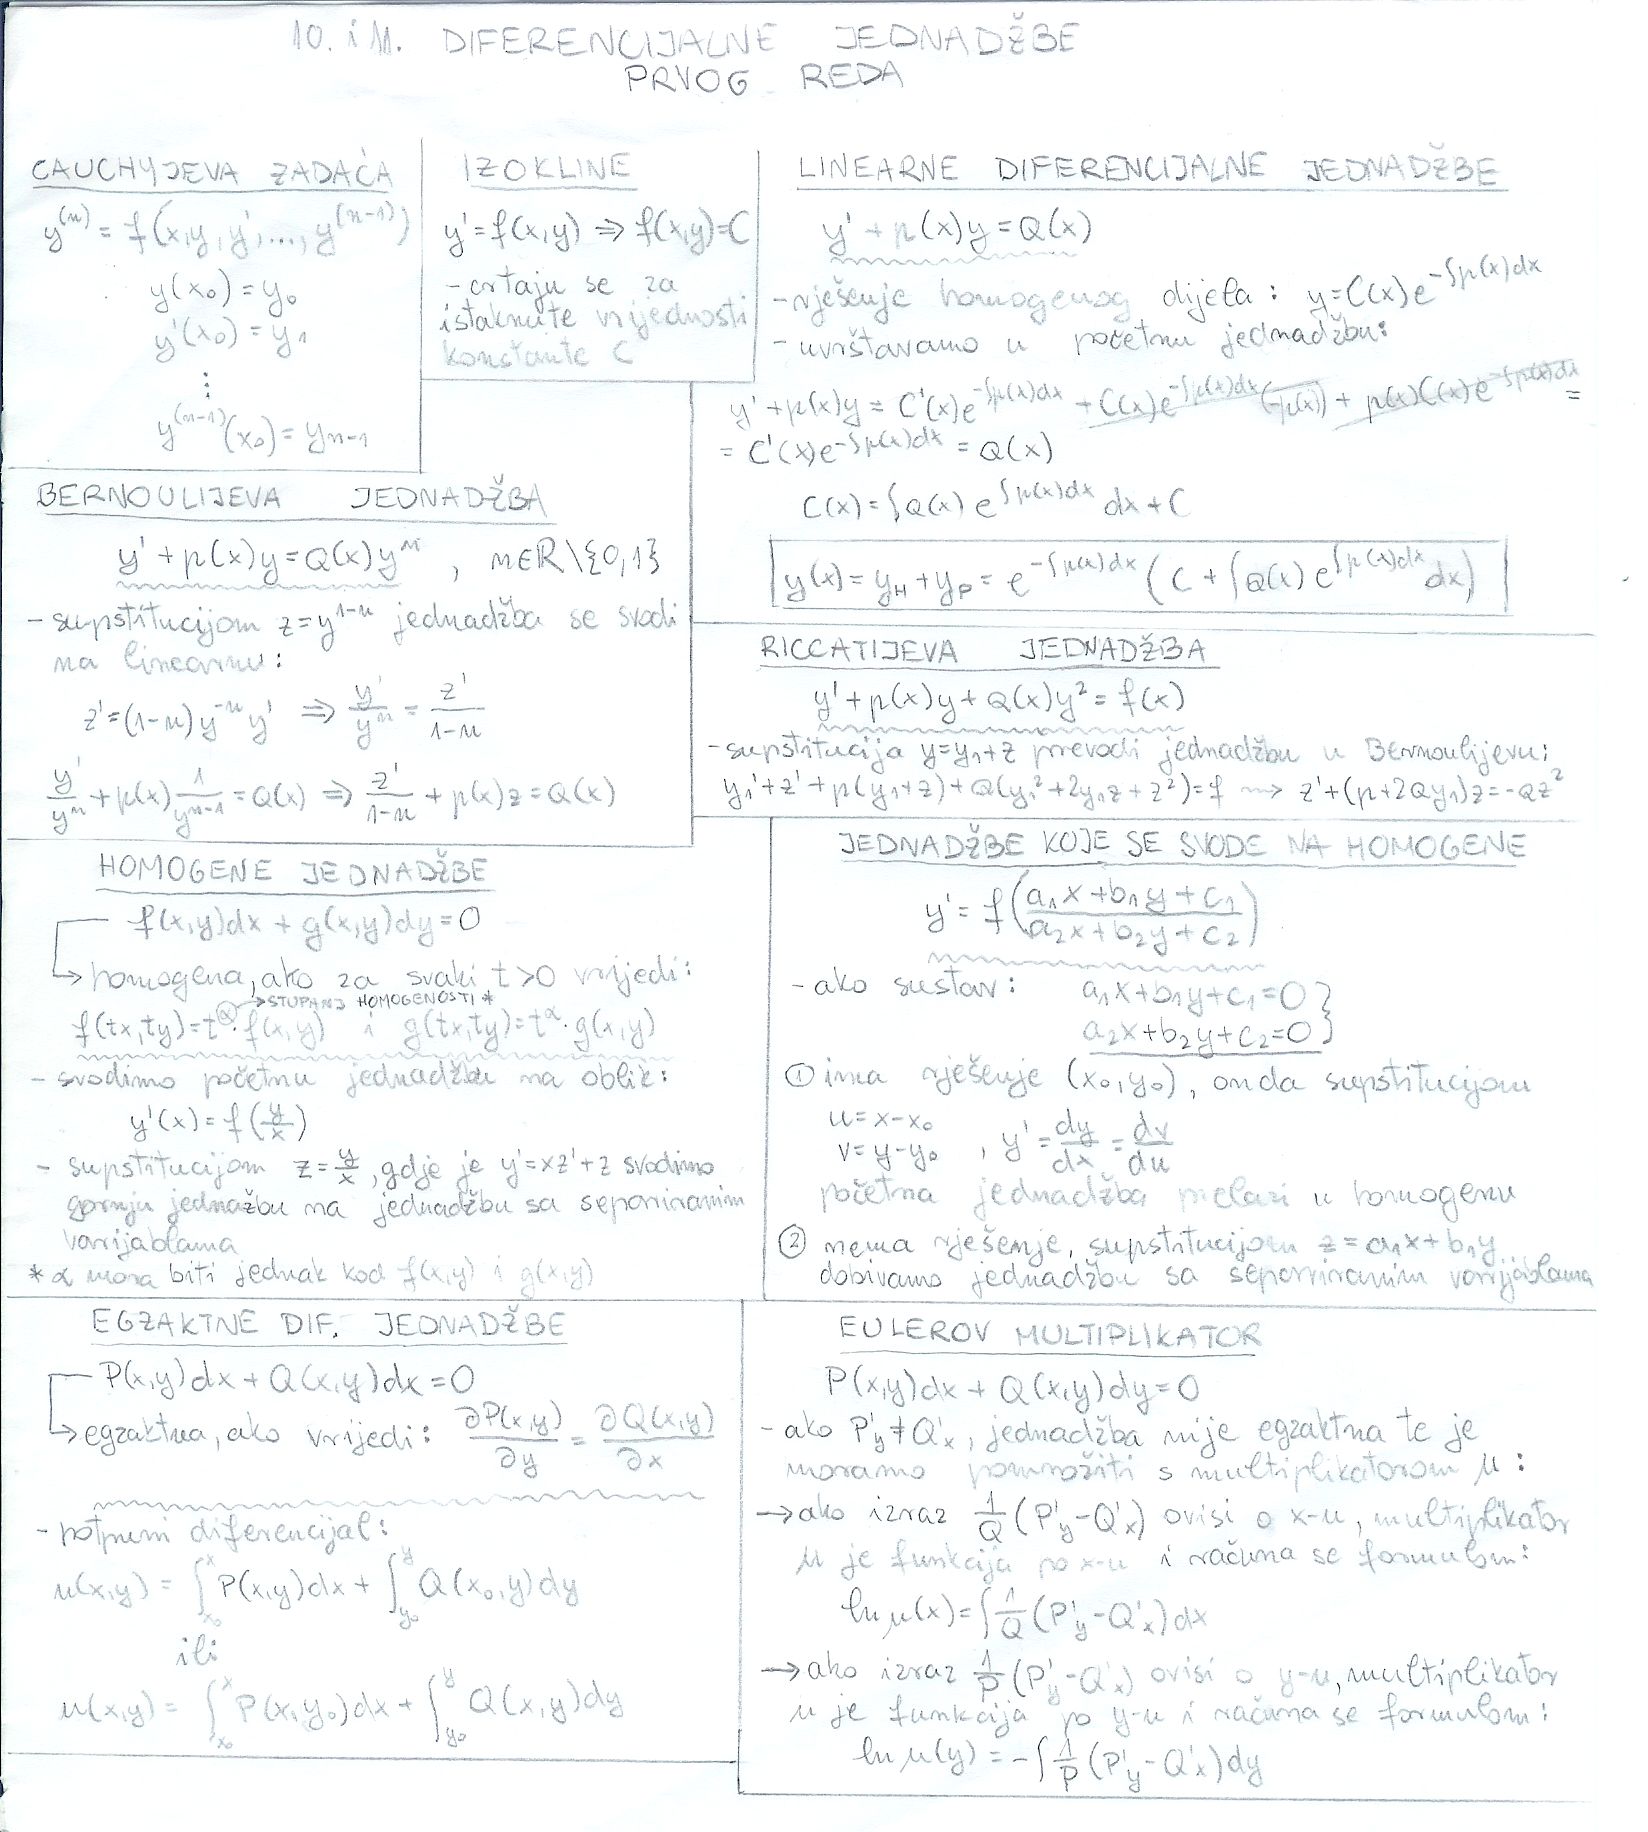 10. i 11. DIFERENCIJALNE JEDNADŽBE
PRVOG REDA
CAUCHYJEVA ZADAĆA
y^(n) = f(x,y,y',...,y^(n-1))
y(x₀)=y₀
y'(x₀)=y₁
⋮
y^(n-1)(x₀)=y_{n-1}
IZOKLINE
y'=f(x,y) ⇒ f(x,y)=C
- crtaju se za
istaknute vrijednosti
konstante C
LINEARNE DIFERENCIJALNE JEDNADŽBE
y'+p(x)y=Q(x)
- rješenje homogenog dijela: y=C(x)e^{-∫p(x)dx}
- uvrštavamo u početnu jednadžbu:
y'+p(x)y = C'(x)e^{-∫p(x)dx} + C(x)e^{-∫p(x)dx}(-p(x)) + p(x)C(x)e^{-∫p(x)dx} =
= C'(x)e^{-∫p(x)dx} = Q(x)
C(x)=∫Q(x)e^{∫p(x)dx}dx+C
y(x)=y_H+y_P = e^{-∫p(x)dx}(C+∫Q(x)e^{∫p(x)dx}dx)
BERNOULIJEVA JEDNADŽBA
y'+p(x)y=Q(x)y^n , n∈R\{0,1}
- supstitucijom z=y^{1-n} jednadžba se svodi
na linearnu:
z'=(1-n)y^{-n}y' ⇒ y'/y^n = z'/(1-n)
y'/y^n + p(x) 1/y^{n-1} = Q(x) ⇒ z'/(1-n) + p(x)z=Q(x)
RICCATIJEVA JEDNADŽBA
y'+p(x)y+Q(x)y²=f(x)
- supstitucija y=y₁+z prevodi jednadžbu u Bernoulijevu:
y₁'+z'+p(y₁+z)+Q(y₁²+2y₁z+z²)=f → z'+(p+2Qy₁)z=-Qz²
HOMOGENE JEDNADŽBE
f(x,y)dx+g(x,y)dy=0
↳ homogena, ako za svaki t>0 vrijedi:
→STUPANJ HOMOGENOSTI *
f(tx,ty)=t^α·f(x,y) i g(tx,ty)=t^α·g(x,y)
- svodimo početnu jednadžbu na oblik:
y'(x)=f(y/x)
- supstitucijom z=y/x, gdje je y'=xz'+z svodimo
gornju jednažbu na jednadžbu sa separiranim
varijablama
* α mora biti jednak kod f(x,y) i g(x,y)
JEDNADŽBE KOJE SE SVODE NA HOMOGENE
y'=f((a₁x+b₁y+c₁)/(a₂x+b₂y+c₂))
- ako sustav: a₁x+b₁y+c₁=0}
a₂x+b₂y+c₂=0}
① ima rješenje (x₀,y₀), onda supstitucijom
u=x-x₀
v=y-y₀ , y'=dy/dx=dv/du
početna jednadžba prelazi u homogenu
② nema rješenje, supstitucijom z=a₁x+b₁y
dobivamo jednadžbu sa separiranim varijablama
EGZAKTNE DIF. JEDNADŽBE
P(x,y)dx+Q(x,y)dx=0
↳ egzaktna, ako vrijedi: ∂P(x,y)/∂y = ∂Q(x,y)/∂x
- potpuni diferencijal:
u(x,y) = ∫_{x₀}^{x} P(x,y)dx + ∫_{y₀}^{y} Q(x₀,y)dy
ili
u(x,y) = ∫_{x₀}^{x} P(x,y₀)dx + ∫_{y₀}^{y} Q(x,y)dy
EULEROV MULTIPLIKATOR
P(x,y)dx+Q(x,y)dy=0
- ako P'_y≠Q'_x, jednadžba nije egzaktna te je
moramo pomnožiti s multiplikatorom μ:
→ ako izraz 1/Q (P'_y-Q'_x) ovisi o x-u, multiplikator
μ je funkcija po x-u i računa se formulom:
ln μ(x)=∫1/Q (P'_y-Q'_x)dx
→ ako izraz 1/P (P'_y-Q'_x) ovisi o y-u, multiplikator
μ je funkcija po y-u i računa se formulom:
ln μ(y)=-∫1/P (P'_y-Q'_x)dy